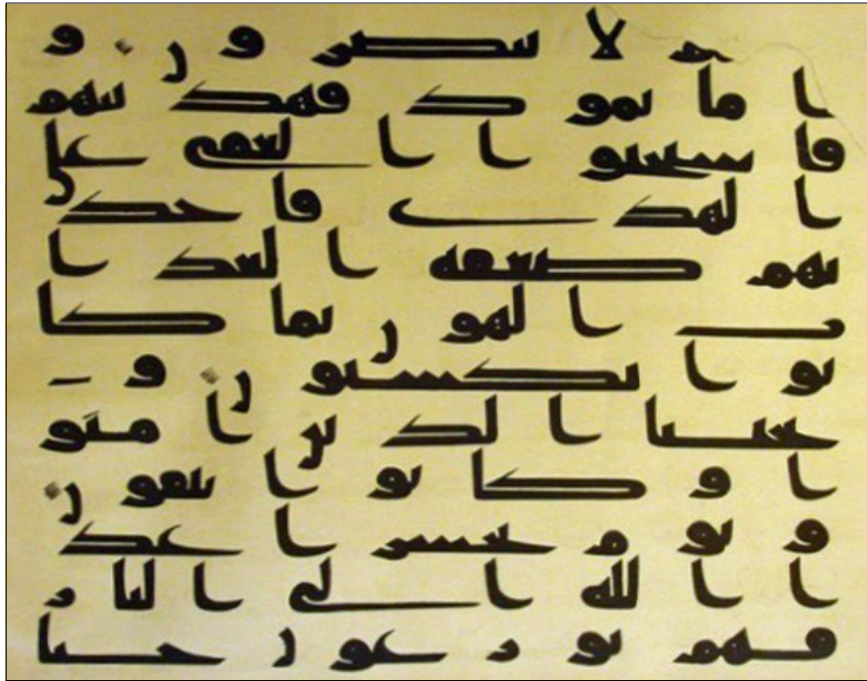 لا ينصرون و
اما ثمود فهدينهم
فاستحبوا العمى على
الهدى فاخذ
تهم صعقة العذا
ب الهون بما كا
نوا يكسبون و
نجينا الذين امنو
ا وكانوا يتقون
ويوم يحشر اعد
ا الله الى النار
فهم يوزعون حتى